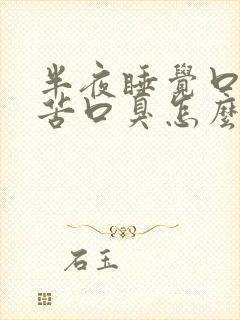 半夜睡覺口
苦口臭怎麼
石玉